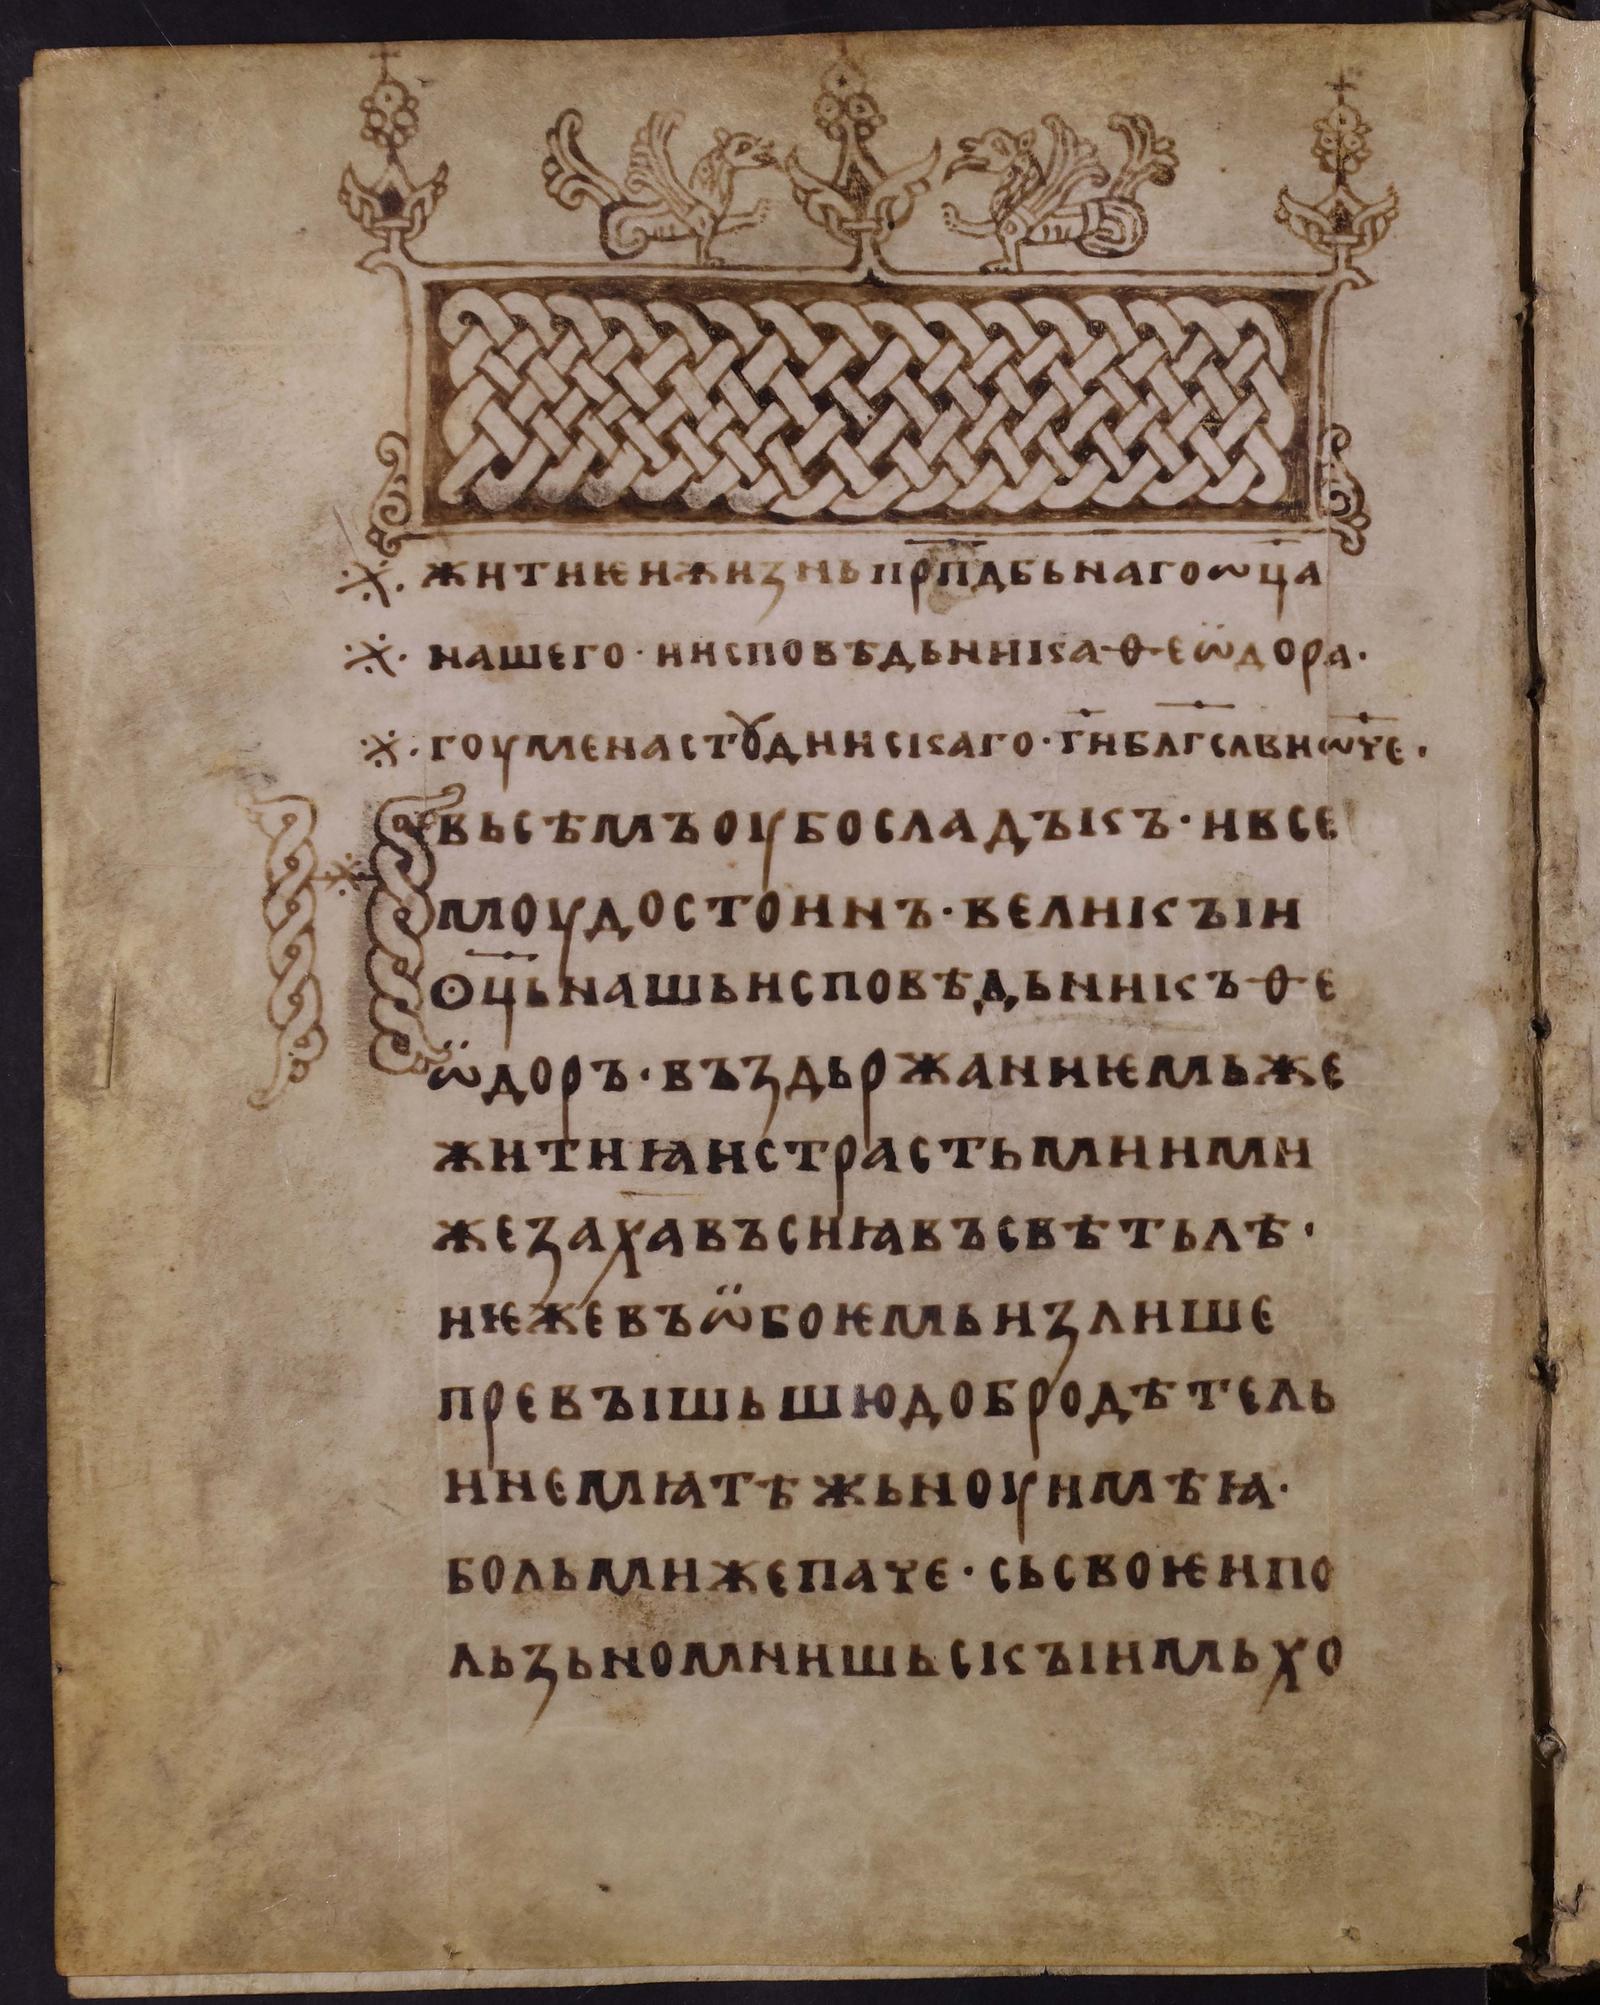 житиѥижизньпрп҃дбьнагоѡц҃а
нашего·иисповѣдьникаѳеѡдора·
гоуменастꙋдиискаго·ги҃блг҃слвиѡч҃е·
Ивьсѣмъоубосладъкъ·ивсе
моудостоинъ·великъіи
ѻц҃ьнашьисповѣдьникъѳе
ѡдоръ·въздьржаниѥмьже
житиꙗистрастьмиими
жезах҃авъсиꙗвъсвѣтьлѣ·
нѥжевъѡбоѥмьизлише
превъішьшюдобродѣтель
инемꙗтѣжьноуимѣꙗ·
больмижепаче·сьсвоѥипо
льзьномнишьскъіимьхо